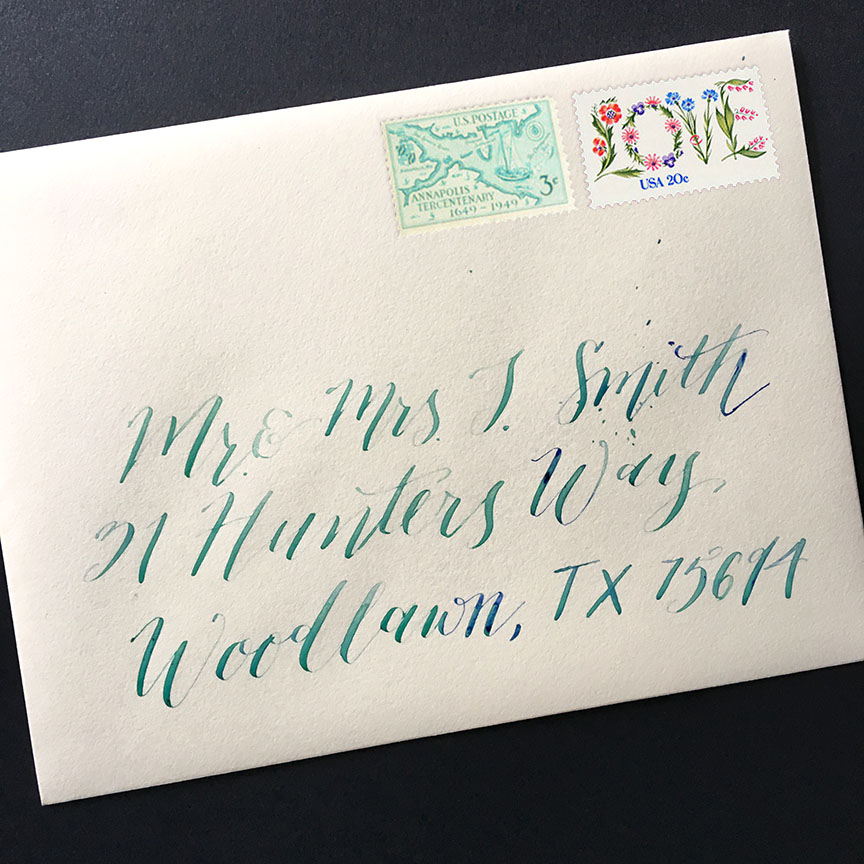 U.S. POSTAGE
ANNAPOLIS
TERCENTENARY
1649-1949
3¢
LOVE
USA 20c
Mr. & Mrs. J. Smith
31 Hunters Way,
Woodlawn, TX 75694